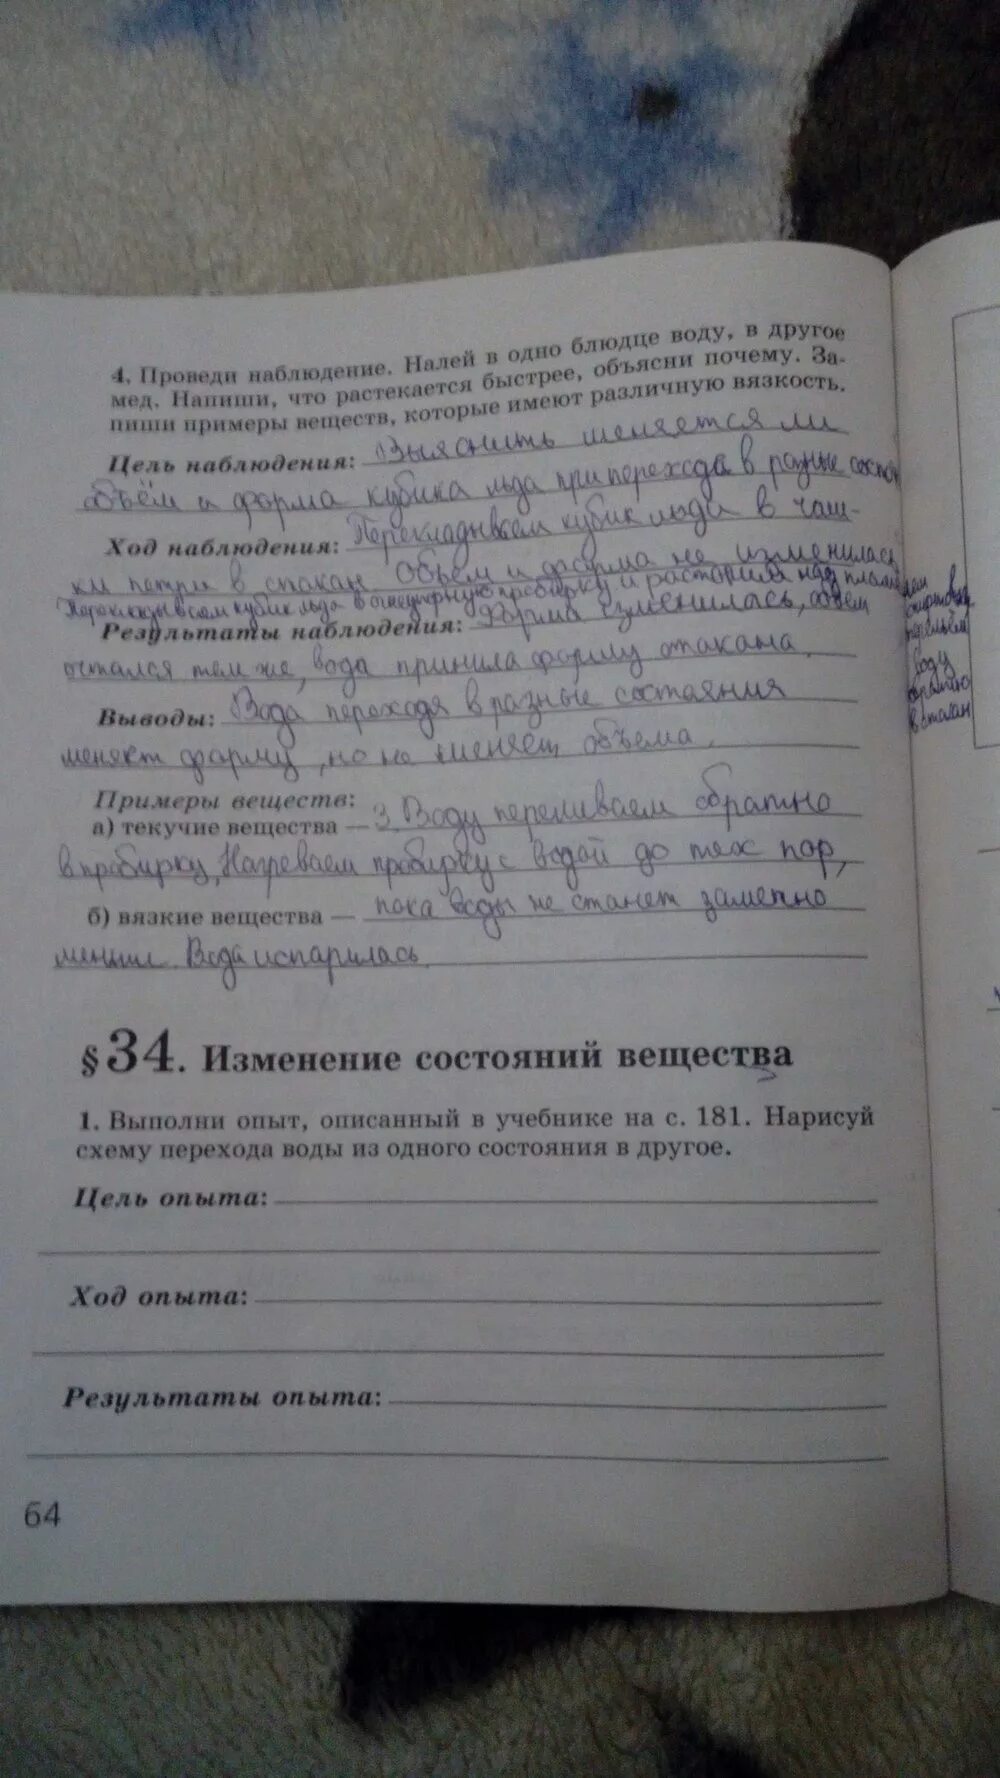 4. Проведи наблюдение. Налей в одно блюдце воду, в другое
мед. Напиши, что растекается быстрее, объясни почему. За-
пиши примеры веществ, которые имеют различную вязкость.
Цель наблюдения: Выяснить меняется ли
объём и форма кубика льда при перехода в разные состоя
Ход наблюдения: Перекладываем кубик льда в чаш-
ки петри в стакан Объем и форма не изменилась
Перекладываем кубик льда в огнеупорную пробирку и растопили над пламенем
спиртовки
перельём
воду
обратно
в стакан
Результаты наблюдения: Форма изменилась, объем
остался тем же, вода приняла форму стакана.
Выводы: Вода переходя в разные состояния
меняет форму, но не меняет объема.
Примеры веществ:
а) текучие вещества — 3. Воду переливаем обратно
в пробирку, Нагреваем пробирку с водой до тех пор,
б) вязкие вещества — пока воды не станет заметно
меньше. Вода испарилась
§ 34. Изменение состояний вещества
1. Выполни опыт, описанный в учебнике на с. 181. Нарисуй
схему перехода воды из одного состояния в другое.
Цель опыта:
Ход опыта:
Результаты опыта:
64